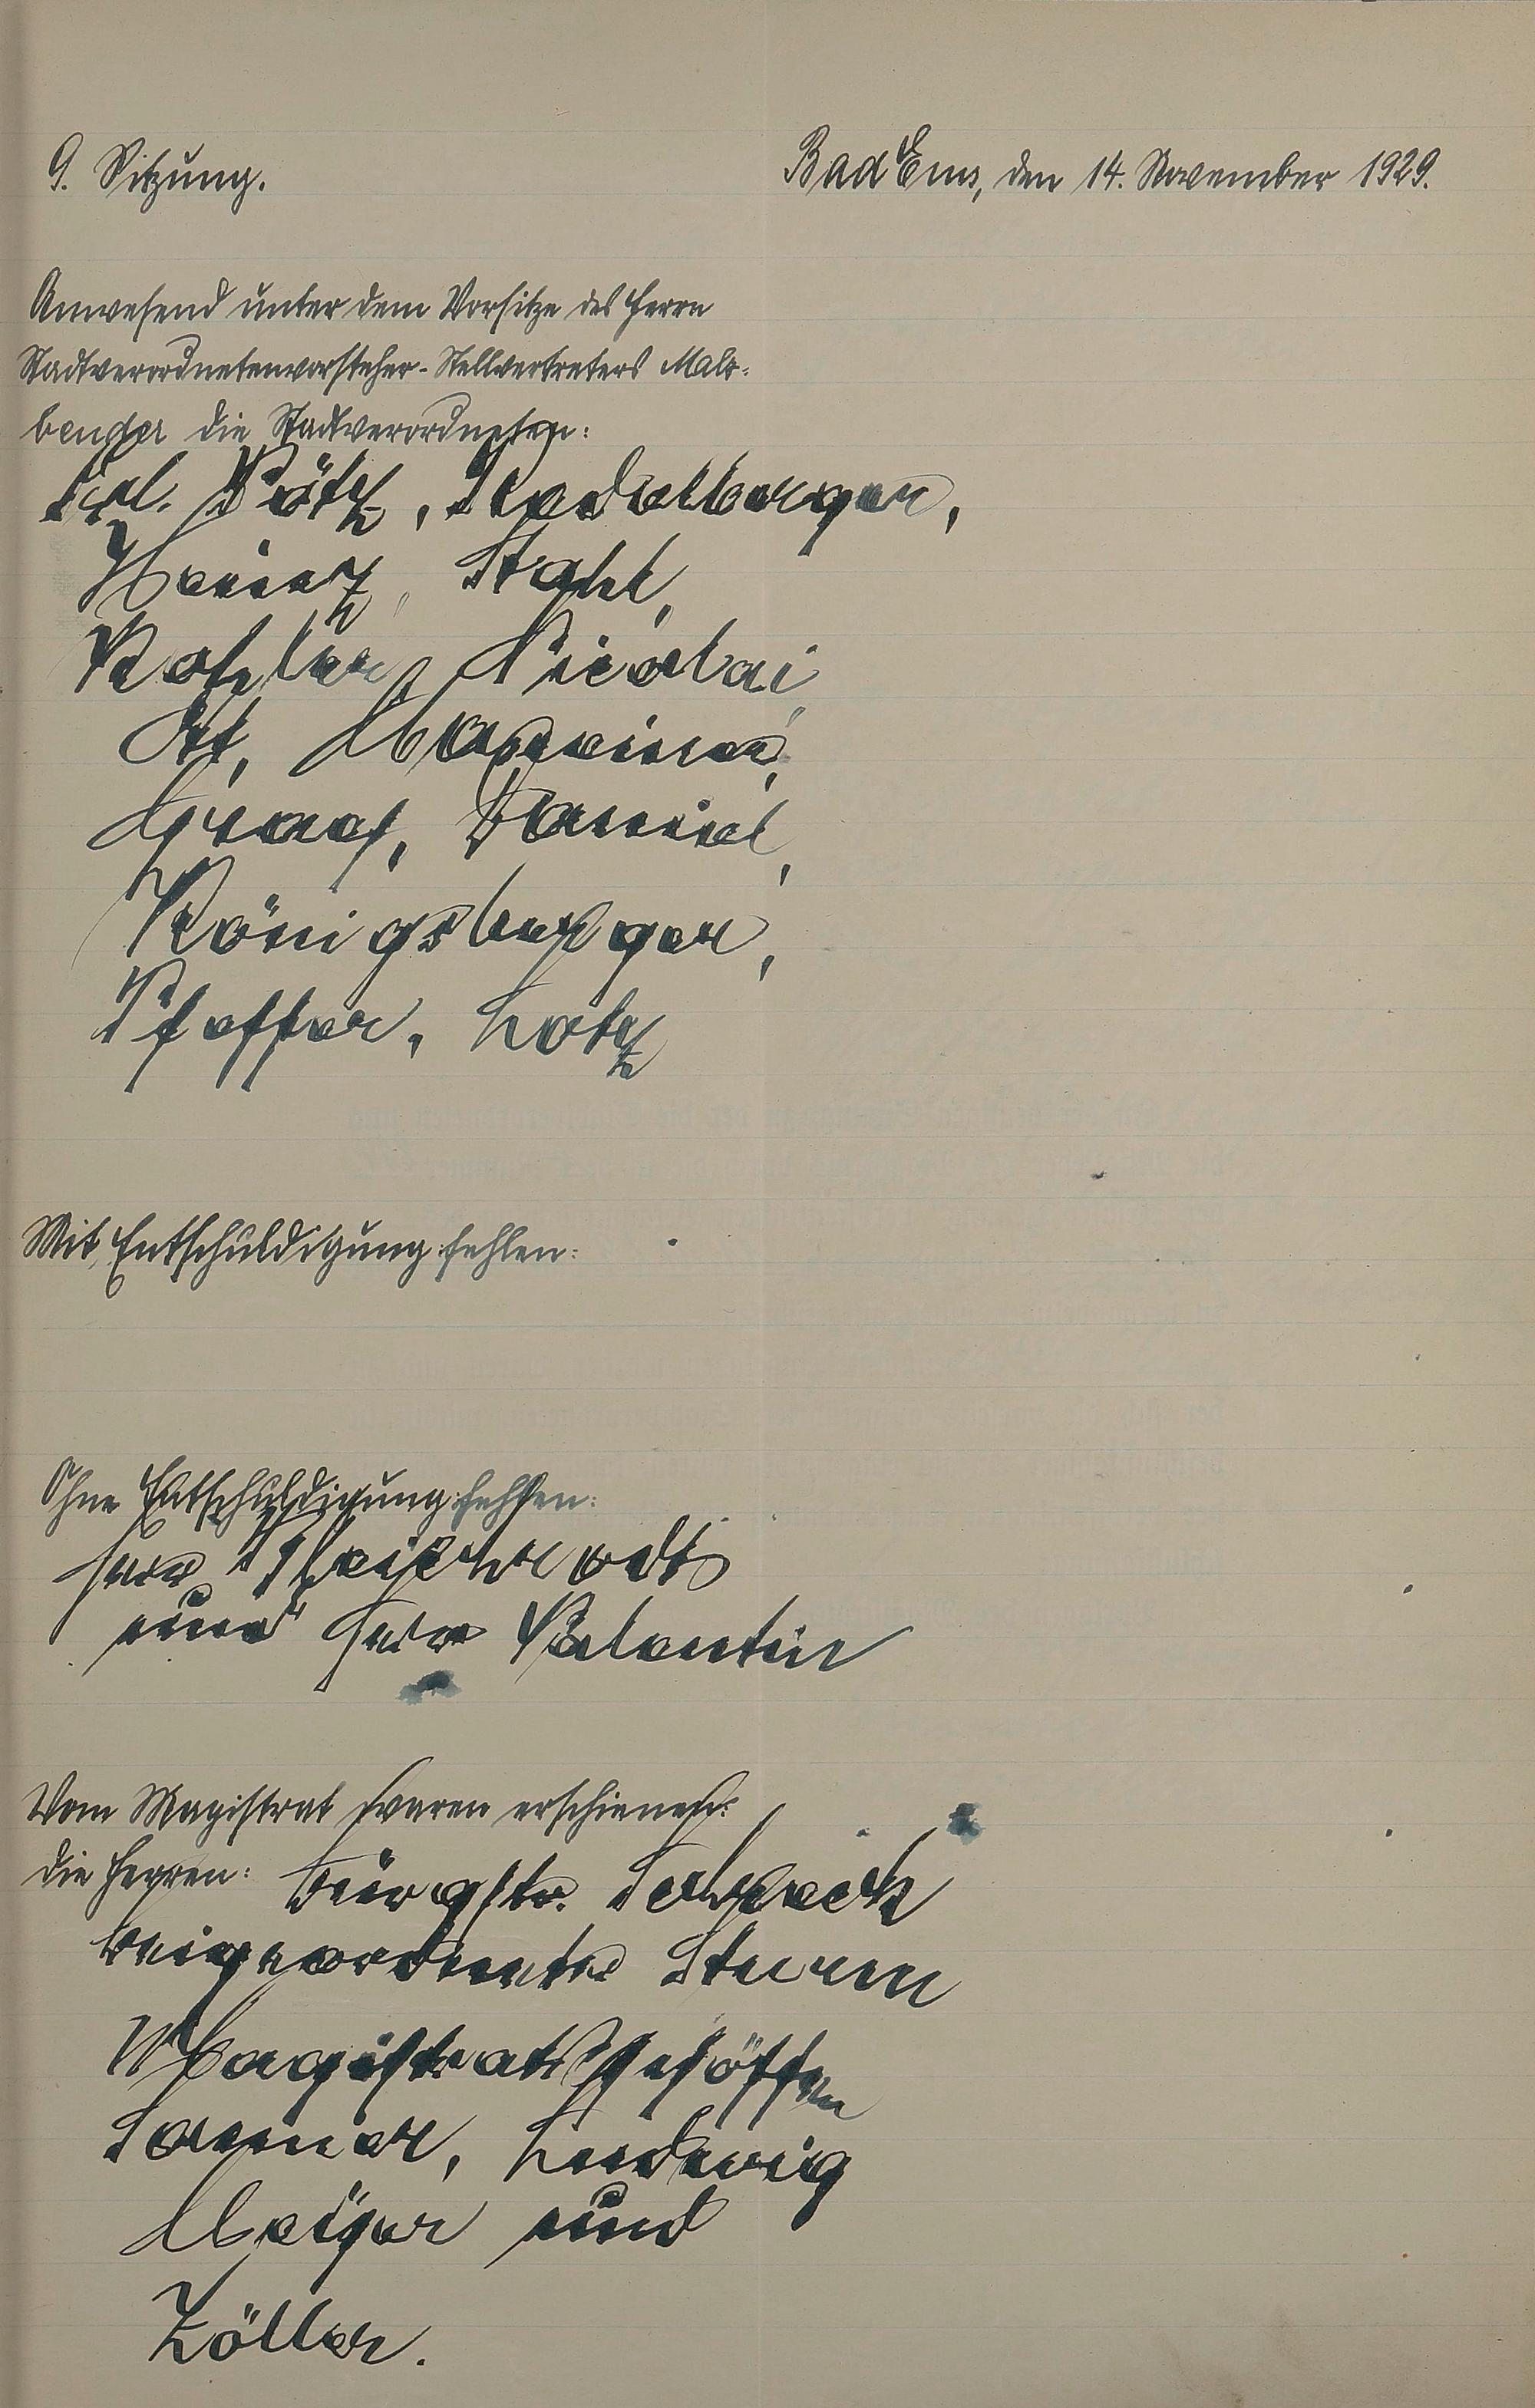 9. Sitzung.
Bad Ems, den 14. November 1929.
Anwesend unter dem Vorsitze des Herrn
Stadtverordnetenvorsteher-Stellvertreters Malz-
bender die Stadtverordneten:
Frl. Pötz,
Heinz, Stahl,
Kohler, Nicolai,
Ott,
Graef, Daniel,
Königsberger,
Pfeffer, Lotz
Mit Entschuldigung fehlen:
Ohne Entschuldigung fehlen:
Herr
und Herr Valentin
Vom Magistrat waren erschienen:
die Herren: Bürgstr. Schreck
Beigeordneter Sturm
Magistratsschöffen
Sommer, Ludwig
Meyer und
Zöller.